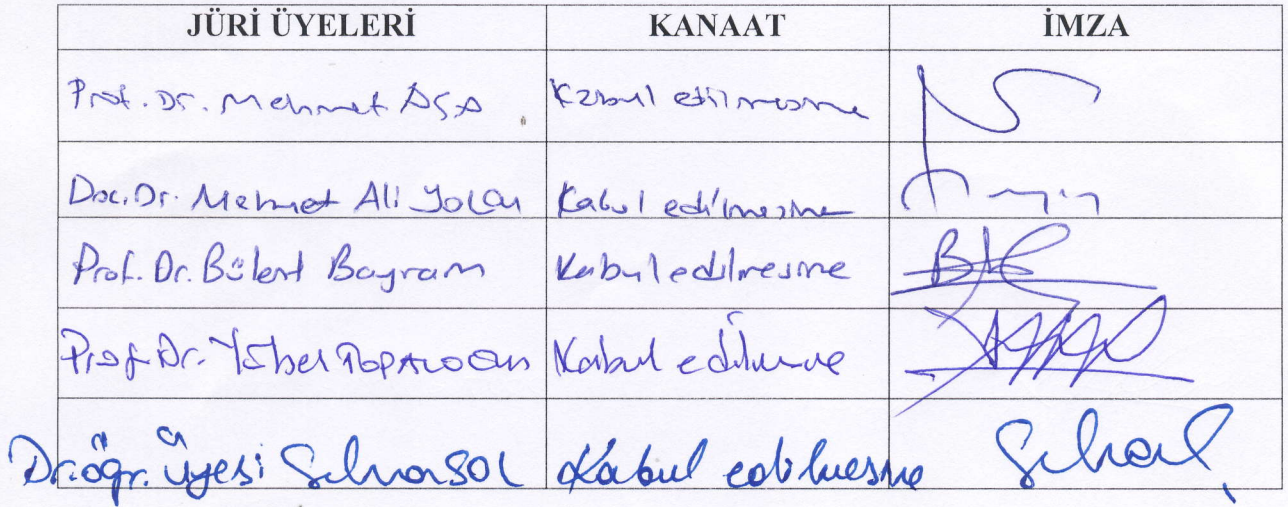 JÜRİ ÜYELERİ KANAAT İMZA
Prof. Dr. Mehmet Aça Kabul edilmesine
Doç. Dr. Mehmet Ali Yolcu Kabul edilmesine
Prof. Dr. Bülent Bayram Kabul edilmesine
Prof. Dr. Topaloğlu Kabul edilmesine
Dr. öğr. üyesi Kabul edilmesine